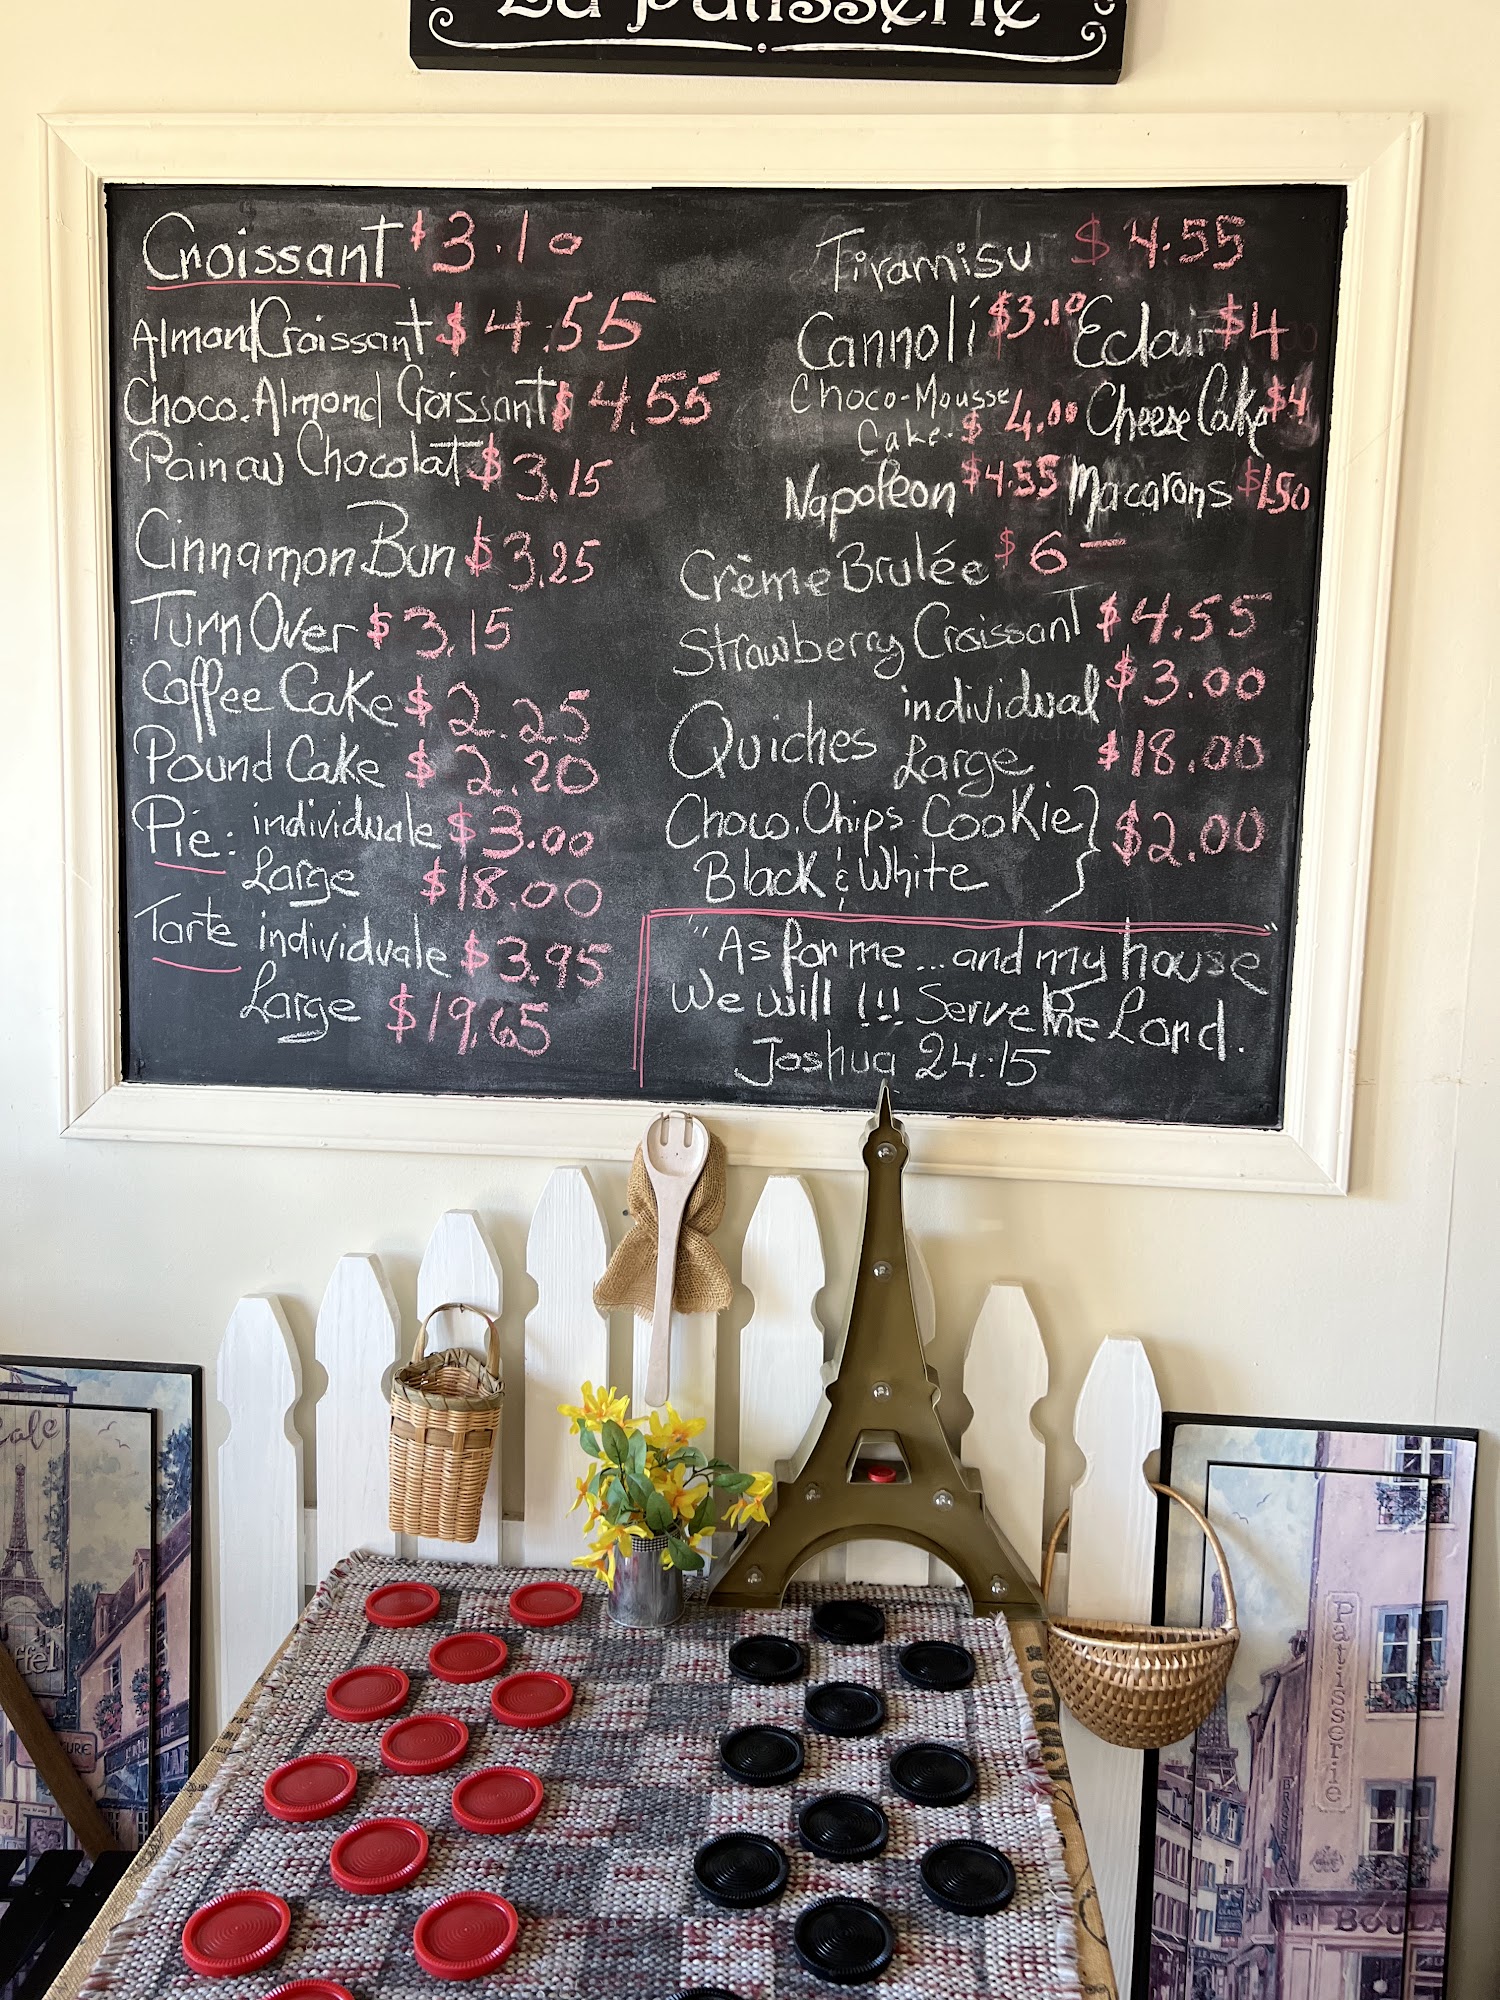 La Patisserie
Croissant $3.10
Almond Croissant $4.55
Choco. Almond Croissant $4.55
Pain au Chocolat $3.15
Cinnamon Bun $3.25
Turn Over $3.15
Coffee Cake $2.25
Pound Cake $2.20
Pie: individuale $3.00
Large $18.00
Tarte individuale $3.95
Large $19.65
Tiramisu $4.55
Cannoli $3.10 Eclair $4
Choco-Mousse Cake $4.00 Cheese Cake $4
Napoleon $4.55 Macarons $1.50
Crème Brulée $6-
Strawberry Croissant $4.55
Quiches individual $3.00
Large $18.00
Choco. Chips Cookie } $2.00
Black & White
"As for me... and my house"
We will !!! Serve the Lord.
Joshua 24:15
Cafe
Patisserie
BOULA